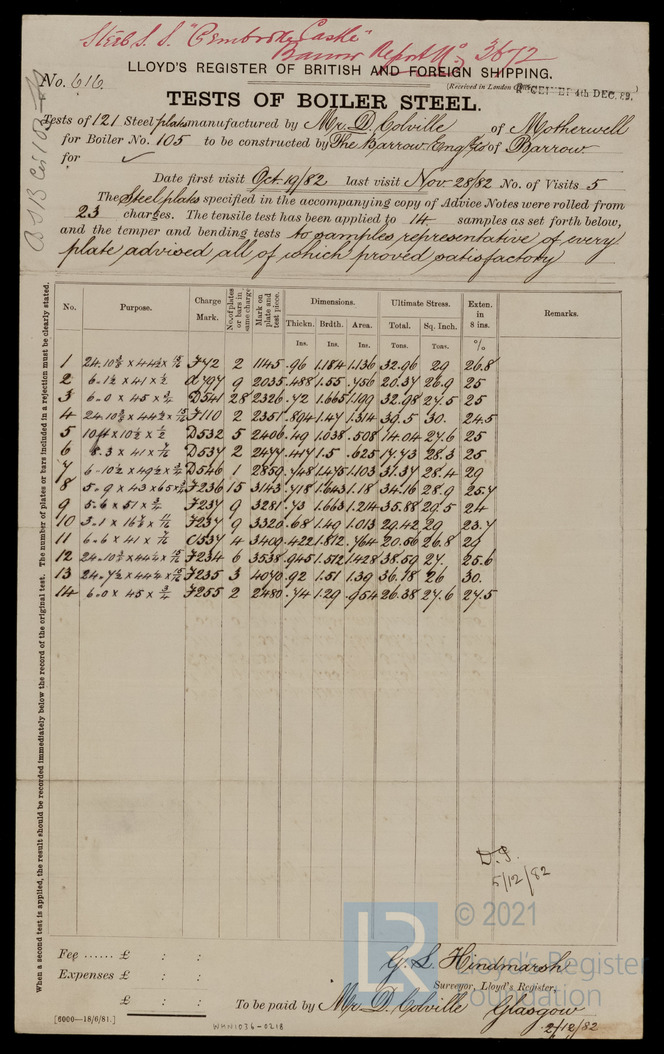 Steel S. S. "Pembroke Castle"
Barrow Report No. 3672
No. 616.
LLOYD'S REGISTER OF BRITISH AND FOREIGN SHIPPING.
(Received in London 4th DEC. 82.)
TESTS OF BOILER STEEL.
Tests of 121 Steel plates manufactured by Mr. D. Colville of Motherwell
for Boiler No. 105 to be constructed by The Barrow Eng Co of Barrow
for ✓
Date first visit Oct 19/82 last visit Nov. 28/82 No. of Visits 5
The Steel plates specified in the accompanying copy of Advice Notes were rolled from
23 charges. The tensile test has been applied to 14 samples as set forth below,
and the temper and bending tests to samples representative of every
plate advised all of which proved satisfactory
When a second test is applied, the result should be recorded immediately below the record of the original test. The number of plates or bars included in a rejection must be clearly stated.
No. Purpose. Charge Mark. No. of plates or bars in same charge Mark on plate and test piece. Dimensions. Ultimate Stress. Exten. in 8 ins. Remarks.
Thickn. Brdth. Area. Total. Sq. Inch.
Ins. Ins. Ins. Tons. Tons. %
1 F72 2 1145 .96 1.184 1.136 32.96 29 26.8
2 6.1½ x 41 x ½ 797 9 2035 .488 1.55 .756 20.37 26.9 25
3 6.0 x 45 x ¾ D541 28 2326 .72 1.665 1.199 32.98 27.5 25
4 F110 2 2351 .894 1.47 1.314 39.5 30. 24.5
5 10ft x 10½ x ½ D532 5 2406 .49 1.038 .508 14.04 27.6 25
6 8.3 x 41 x D537 2 2477 .417 1.5 .625 17.73 28.3 25
7 6-10½ x 49½ x ¾ D546 1 2859 .748 1.475 1.103 31.37 28.4 29
8 5.9 x 43 x 65 x ¾ F236 15 3143 .718 1.643 1.18 34.16 28.9 25.7
9 5.6 x 51 x ¾ F237 9 3281 .73 1.663 1.214 35.88 29.5 24
10 F237 9 3320 .68 1.49 1.013 29.42 29 23.7
11 6.6 x 41 x C537 4 3409 .422 1.812 .764 20.56 26.8
12 F234 6 3538 .945 1.512 1.428 38.59 27. 25.6
13 F235 3 4070 .92 1.51 1.39 36.18 26 30.
14 6.0 x 45 x ¾ F255 2 2480 .74 1.29 .954 26.38 27.6 27.5
5/12/82
© 2021
LR
Lloyd's Register
Foundation
Fee ...... £ : :
Expenses £ : :
£ : :
G. S. Hindmarsh
Surveyor, Lloyd's Register,
To be paid by Mr D. Colville Glasgow
2/12/82
[6000—18/6/81.]
WMN1036-0218